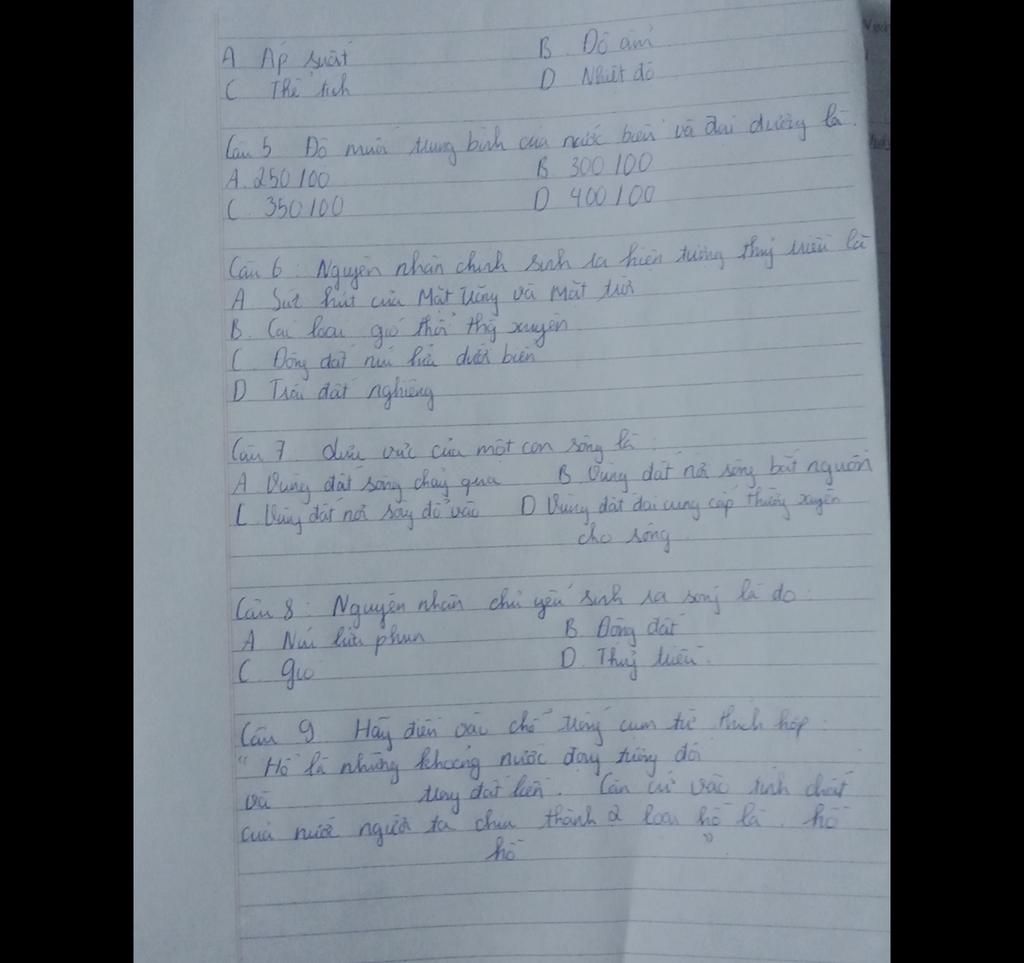 A Áp suất B Độ ẩm
C Thể tích D Nhiệt độ
Câu 5 Độ muối trung bình của nước biển và đại dương là
A. 250/00 B 300/00
C 350/00 D 400/00
Câu 6: Nguyên nhân chính sinh ra hiện tượng thuỷ triều là
A Sức hút của Mặt Trăng và Mặt trời
B. Các loại gió thổi thg xuyên
C Động đất núi lửa dưới biển
D Trái đất nghiêng
Câu 7 Lưu vực của một con sông là
A Vùng đất sông chảy qua B Vùng đất nơi sông bắt nguồn
C. Vùng đất nơi sông đổ vào D Vùng đất đai cung cấp thường xuyên
cho sông
Câu 8: Nguyên nhân chủ yếu sinh ra sóng là do:
A Núi lửa phun B Động đất
C. gió D. Thuỷ triều.
Câu 9 Hãy điền vào chỗ trống cụm từ thích hợp:
"Hồ là những khoảng nước đọng tương đối
và trong đất liền. Căn cứ vào tính chất
của nước người ta chia thành 2 loại hồ là hồ
hồ "